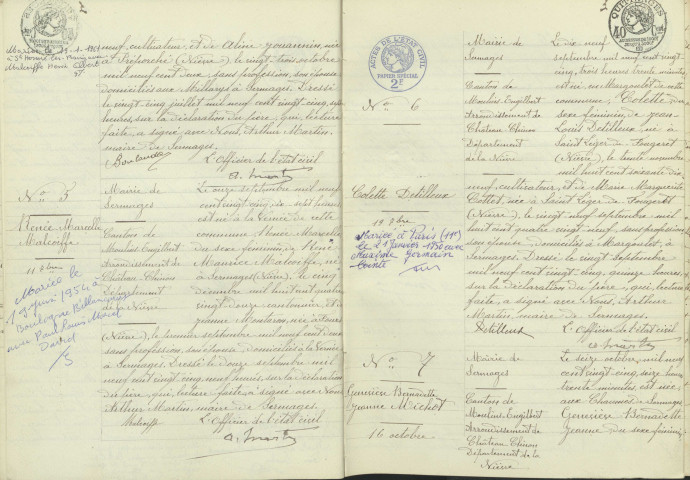 neuf, cultivateur, et de Aline Jouannin, née
à Préporché (Nièvre), le vingt trois octobre
mil neuf cent deux, sans profession, son épouse
domiciliés aux Mollarys à Sermages. Dressé
le vingt cinq juillet mil neuf cent vingt cinq,
heures, sur la déclaration du père, qui, lecture
faite, a signé avec Nous, Arthur Martin,
maire de Sermages.
L'Officier de l'état civil
A. Martin
No 5
Renée Marcelle
Malcoiffe
11 7bre
Mariée le
1954 à
Boulogne Billancourt
avec Paul Louis Marcel
David
Mairie de
Sermages
Canton de
Moulins Engilbert
Arrondissement de
Château-Chinon
Département
de la Nièvre
Le onze septembre mil neuf
cent vingt cinq, dix sept heures,
est née à la de cette
commune Renée Marcelle,
du sexe féminin, de René
Maurice Malcoiffe, né
à Sermages (Nièvre), le cinq
décembre mil huit cent quatre
vingt douze, cantonnier, et de
Jeanne Monteron, née à
(Nièvre), le premier septembre mil neuf cent deux
sans profession, son épouse domiciliés à
à Sermages. Dressé le douze septembre mil
neuf cent vingt cinq, neuf heures, sur la déclaration
du père, qui, lecture faite a signé avec Nous
Arthur Martin, maire de Sermages.
Malcoiffe L'Officier de l'état civil
A. Martin
ACTES DE L'ETAT CIVIL
PAPIER SPECIAL
2F
No 6
Colette Détilleux
19 7bre
Mariée à Paris (11e)
le 21 janvier 1950 avec
Maxime Germain
Mairie de
Sermages
Canton de
Moulins Engilbert
Arrondissement de
Château Chinon
Département
de la Nièvre
Le dix neuf
septembre mil neuf cent vingt
cinq, trois heures trente minutes
est née, au Margoulot de cette
commune, Colette, du
sexe féminin, de Jean
Louis Détilleux, né à
Saint Léger de Fougeret
(Nièvre), le trente novembre
mil huit cent soixante dix
neuf, cultivateur, et de Marie Marguerite
Collot, née à Saint Léger de Fougeret
(Nièvre), le vingt neuf septembre mil
huit cent quatre vingt neuf, sans profession,
son épouse domiciliés à Margoulot, à
Sermages. Dressé le vingt septembre
mil neuf cent vingt cinq, quinze heures,
sur la déclaration du père, qui, lecture
faite, a signé avec Nous, Arthur
Martin, maire de Sermages.
Détilleux L'Officier de l'état civil
A. Martin
No 7
Geneviève Bernadette
Jeanne Michot
16 octobre
Mairie de
Sermages
Canton de
Moulins-Engilbert
Arrondissement de
Château-Chinon
Département de la
Nièvre
Le seize octobre, mil neuf
cent vingt cinq, seize heures
trente minutes, est née
aux Chaumes de Sermages
Geneviève Bernadette
Jeanne du sexe féminin,